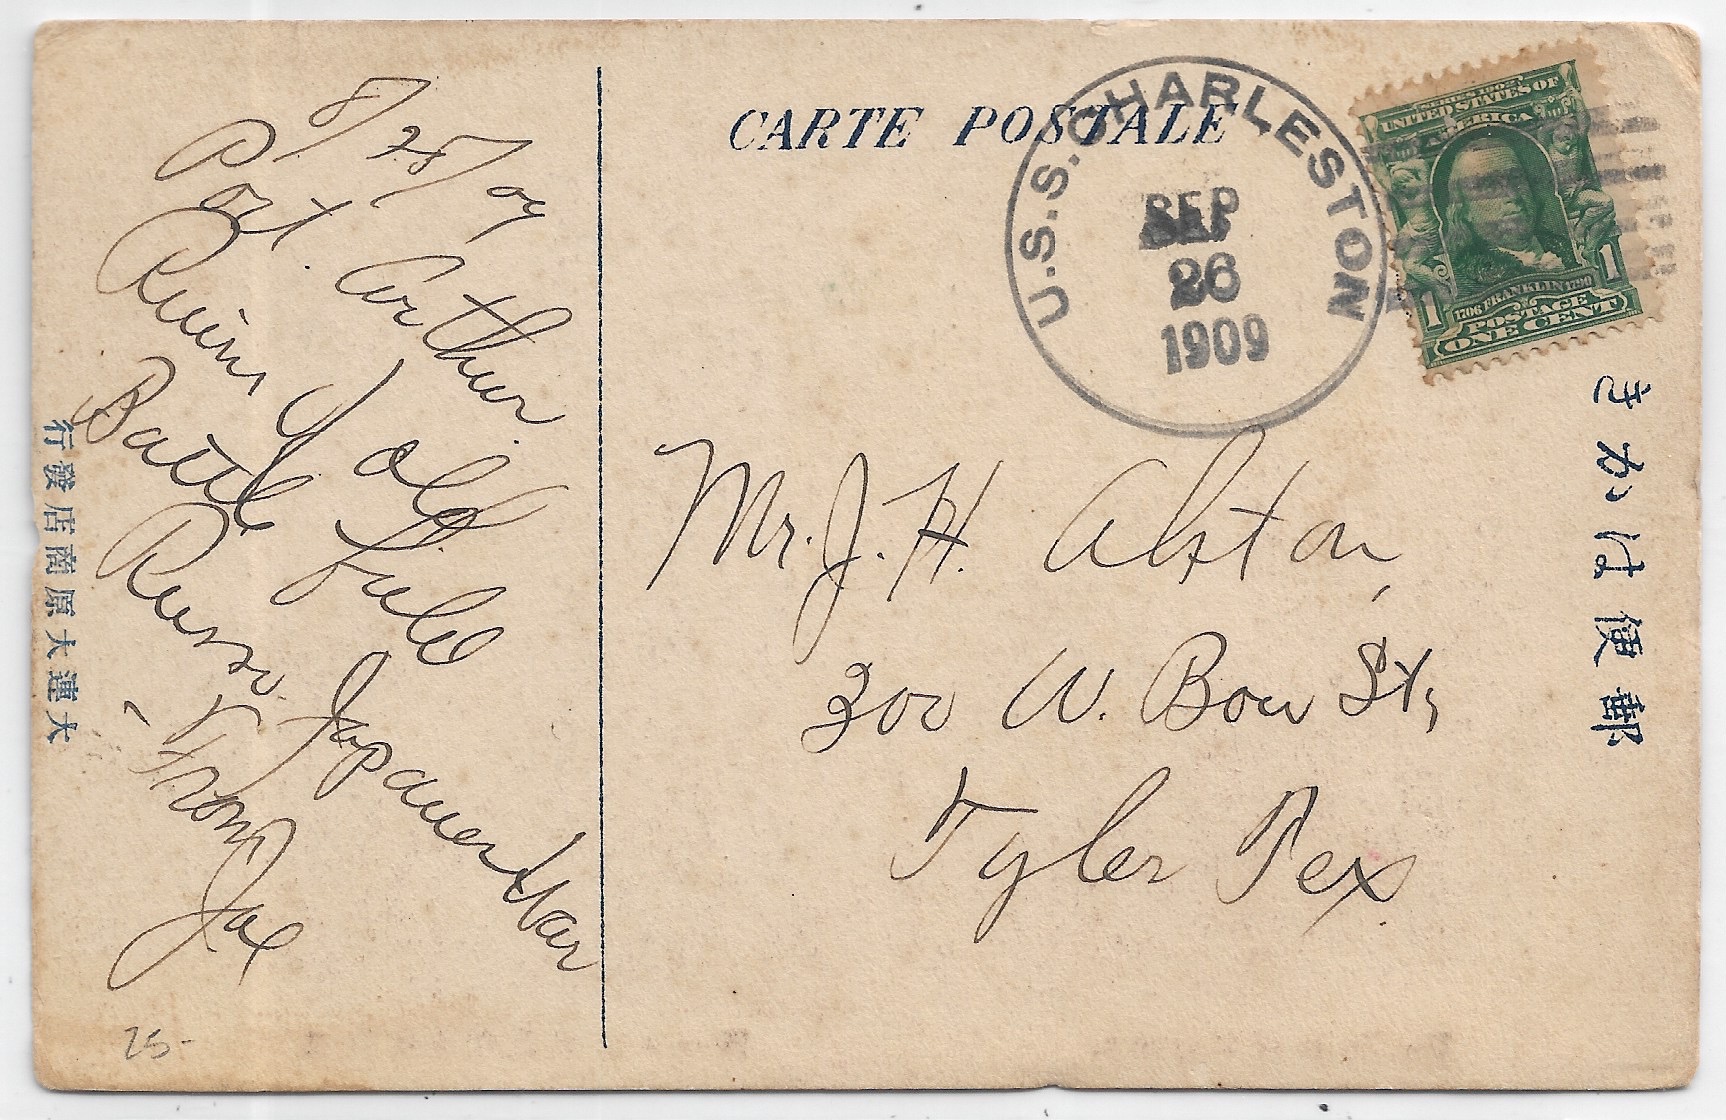 8/25/09
Port Arthur.
Ruins of old
Battle field
Russo Japanese War
From Joe
25-
大連大原商店發行
CARTE POSTALE
U.S.S. CHARLESTON
SEP
26
1909
SERIES 1902
UNITED STATES OF
AMERICA
1 1
1706 FRANKLIN 1790
POSTAGE
ONE CENT
Mr. J. H. Alston,
300 W. Bow St,
Tyler Tex.
郵便はかき